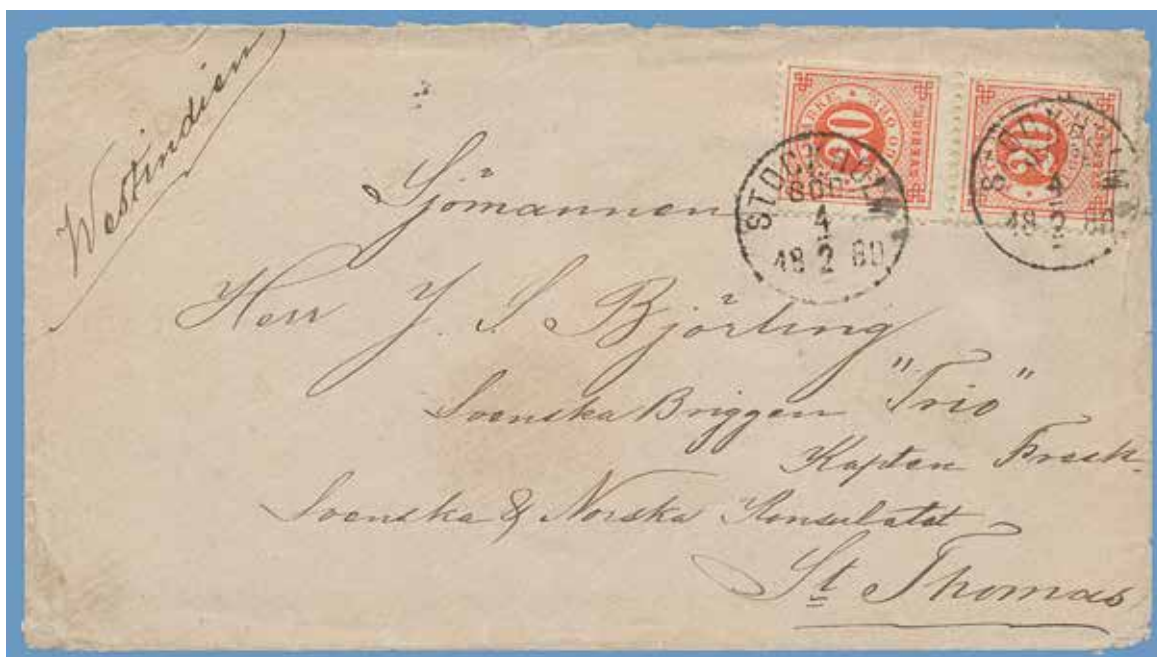 Westindien
20 SVERIGE
20 SVERIGE
STOCKHOLM
4
18 2 80
STOCKHOLM
4
18 2 80
Sjömannen
Herr J. S. Björling
Svenska Briggen "Trio"
Kapten
Svenska & Norska Konsulatet
St Thomas